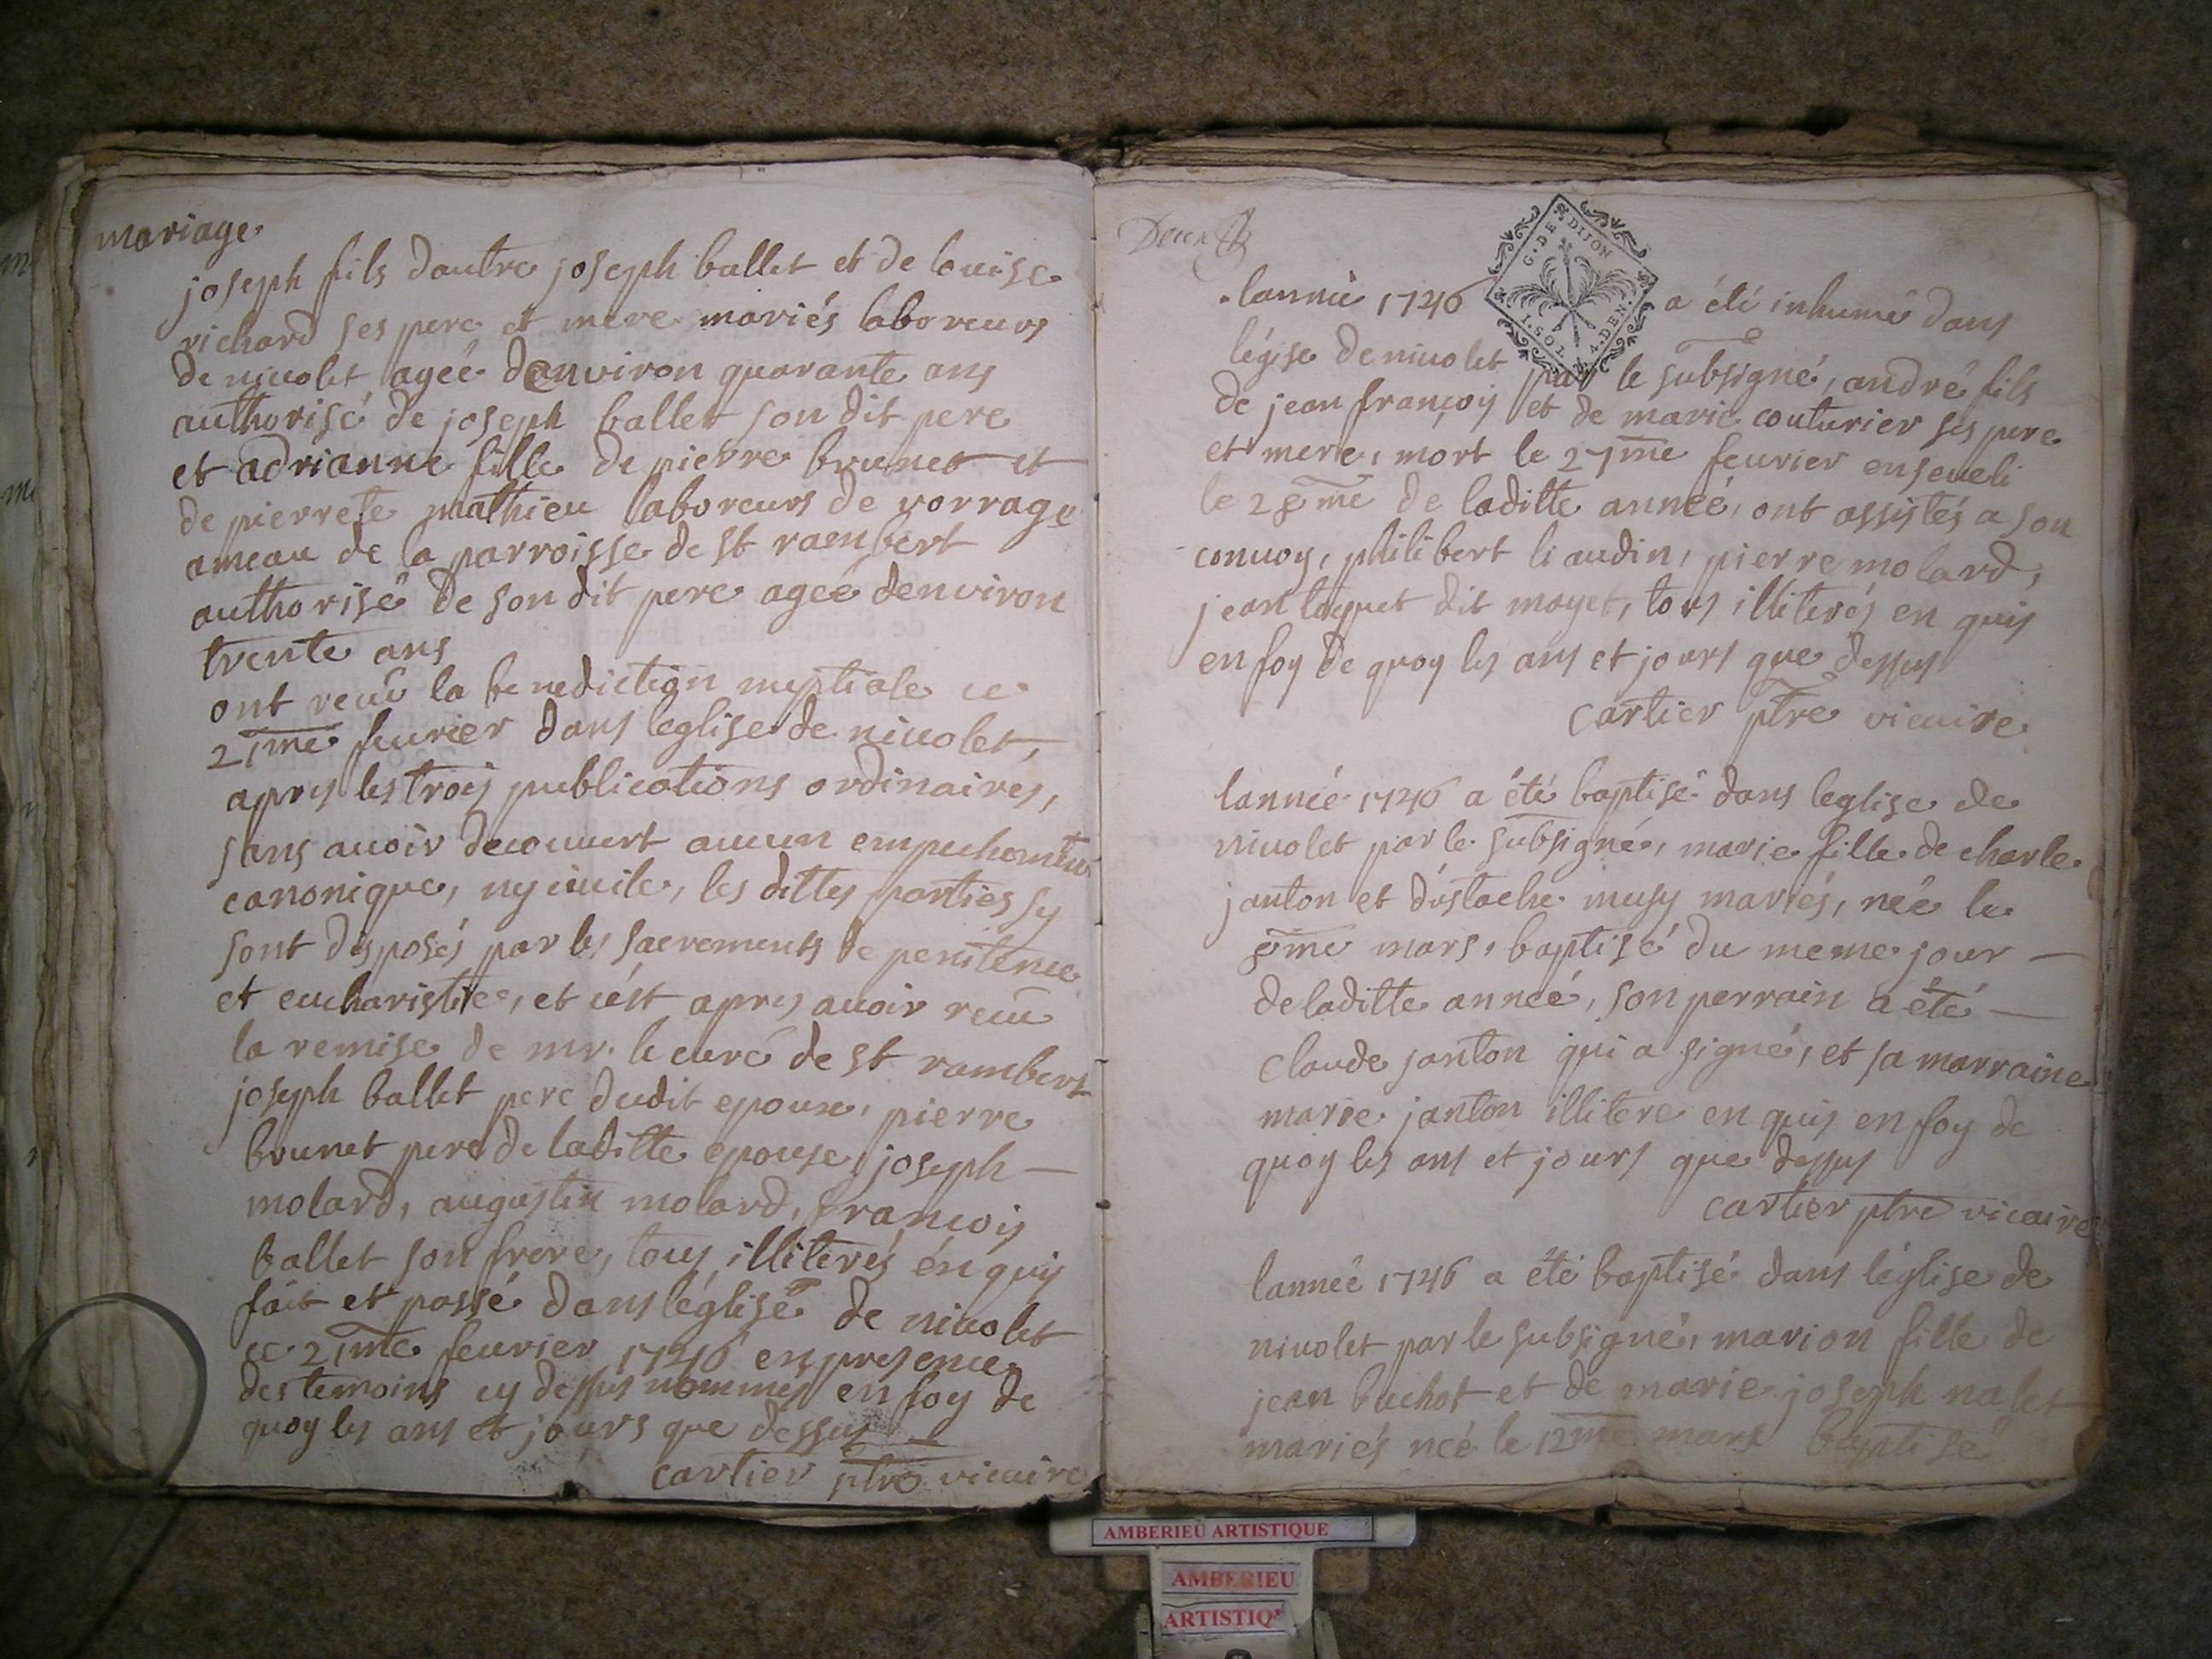 mariage
joseph fils dautre joseph ballet et de louise
richard ses pere et mere mariés laboreurs
de nivolet ageé denviron quarante ans
authorisé de joseph ballet son dit pere
et adrianne fille de pierre brunet et
de pierrete mathieu laboreurs de vorrage
ameau de la parroisse de st rambert
authorisé de son dit pere ageé denviron
trente ans
ont reçu la benediction nuptiale ce
fevrier dans leglise de nivolet,
apres les trois publications ordinaires,
sans avoir decouvert aucun
canonique, ny civile, les dittes parties sy
sont disposés par les sacrements de penitence
et eucharistie, et cést apres avoir recu
la remise de mr. le curé de st rambert
joseph ballet pere dudit epoux, pierre
brunet pere de laditte epouse, joseph
molard, augustin molard, françois
ballet son frere, tous illiterés énquis
fait et passé dans léglise de nivolet
ce fevrier 1746 en presence
des temoins cy dessus nommés en foy de
quoy les ans et jours que dessus
cartier ptre vicaire
G. DE DIJON
. lanneé 1746 a été inhumé dans
légise de nivolet par le subsigné, andré fils
de jean françois et de marie couturier ses pere
et mere, mort le 27me fevrier enseveli
le 28me de laditte anneé, ont assistés a son
convoy, philibert liaudin, pierre molard,
jean dit mayet, tous illiterés enquis
en foy de quoy les ans et jours que dessus
cartier ptre vicaire
lanneé 1746 a été baptisé dans leglise de
nivolet par le subsigné, marie fille de charle
janton et dustache musy mariés, neé le
8me mars, baptisé du meme jour
de laditte anneé, son perrain a été
claude janton qui a signé, et sa marraine
marie janton illitere enquis en foy de
quoy les ans et jours que dessus
cartier ptre vicaire
lanneé 1746 a été baptisé dans léglise de
nivolet par le subsigné, marion fille de
jean buchot et de marie joseph nalet
mariés neé le 12me mars baptisé
AMBERIEU ARTISTIQUE
AMBERIEU
ARTISTIQ